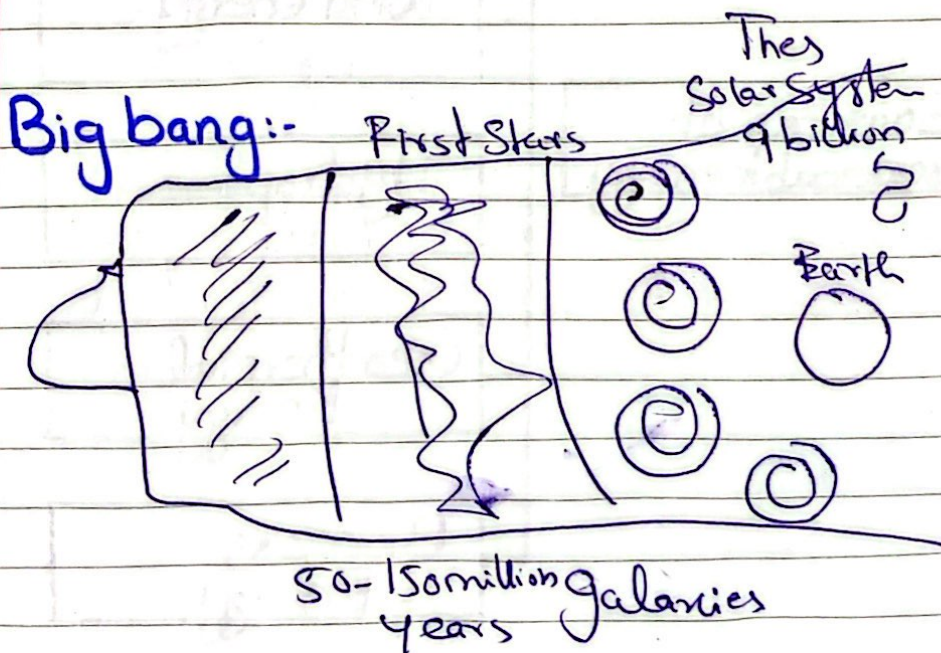 Big bang:-
First Stars
Thes
Solar System
9 billion
?
Earth
50-150 million
years
galaxies